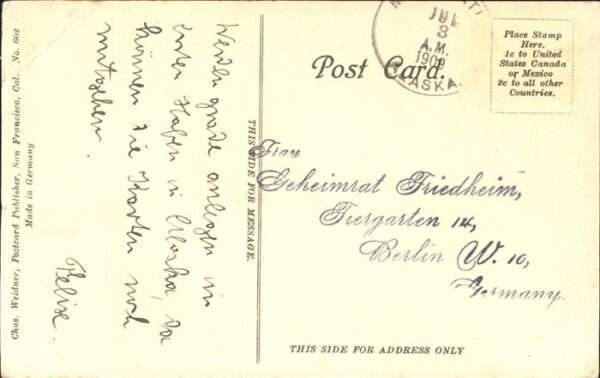 Chas. Weidner, Postcard Publisher, San Francisco, Cal. No. 602
Made in Germany
Werden grade anlegen im
ersten Hafen in Alaska, da
können die Karten noch
mitgehen.
Felix.
THIS SIDE FOR MESSAGE.
Post Card.
JUL
3
A.M.
1909
ALASKA.
Place Stamp
Here.
1c to United
States Canada
or Mexico
2c to all other
Countries.
Frau
Geheimrat Friedheim,
Tiergarten 14,
Berlin W. 10,
Germany.
THIS SIDE FOR ADDRESS ONLY